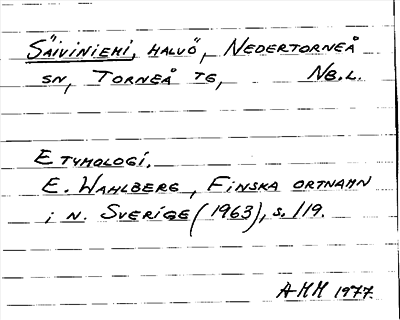 Säiviniemi, halvö, Nedertorneå
sn, Torneå tg, Nb.l.
Etymologi.
E. Wahlberg, Finska ortnamn
i n. Sverige (1963), s. 119.
AMM 1977.